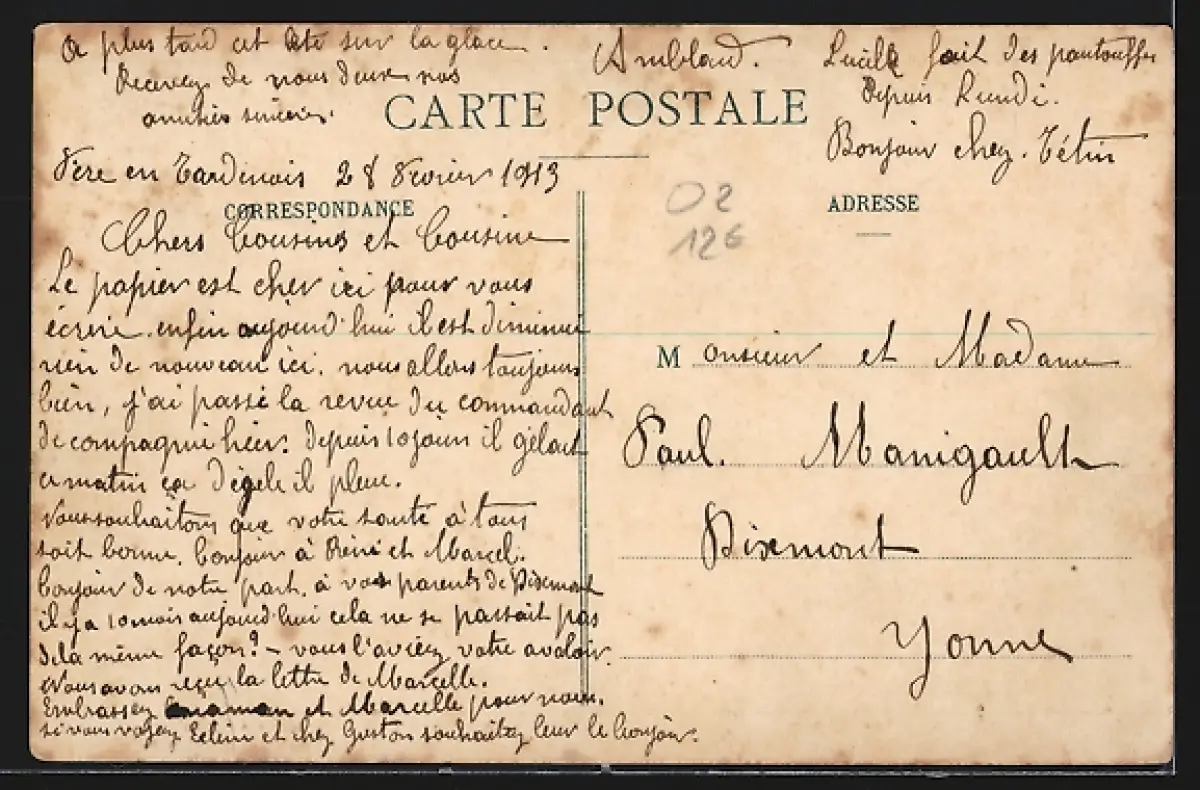 A plus tard cet été sur la glace.
Recevez de nous deux nos
amitiés sincères.
Amblard.
Lucile fait des pantouffles
depuis Lundi.
Bonjour chez Tétin
CARTE POSTALE
Fère en Tardenois 28 Février 1913
CORRESPONDANCE
Chers Cousins et Cousine
Le papier est cher ici pour vous
écrire enfin aujourd'hui il est diminué
rien de nouveau ici. nous allons toujours
bien, j'ai passé la revue du commandant
de compagnie hier. depuis 10 jours il gelait
ce matin ça dégèle il pleut.
Nous souhaitons que votre santé à tous
soit bonne. Bonjour à Réné et Marcel.
Bonjour de notre part, à vos parents de Dixmont
il y a 10 mois aujourd'hui cela ne se passait pas
de la même façon? - vous l'aviez votre avaloir.
Nous avons reçu la lettre de Marcelle.
Embrassez maman et Marcelle pour nous.
si vous voyez et chez Gaston souhaitez leur le bonjour.
02
126
ADRESSE
Monsieur et Madame
Paul. Manigault
Dixmont
Yonne